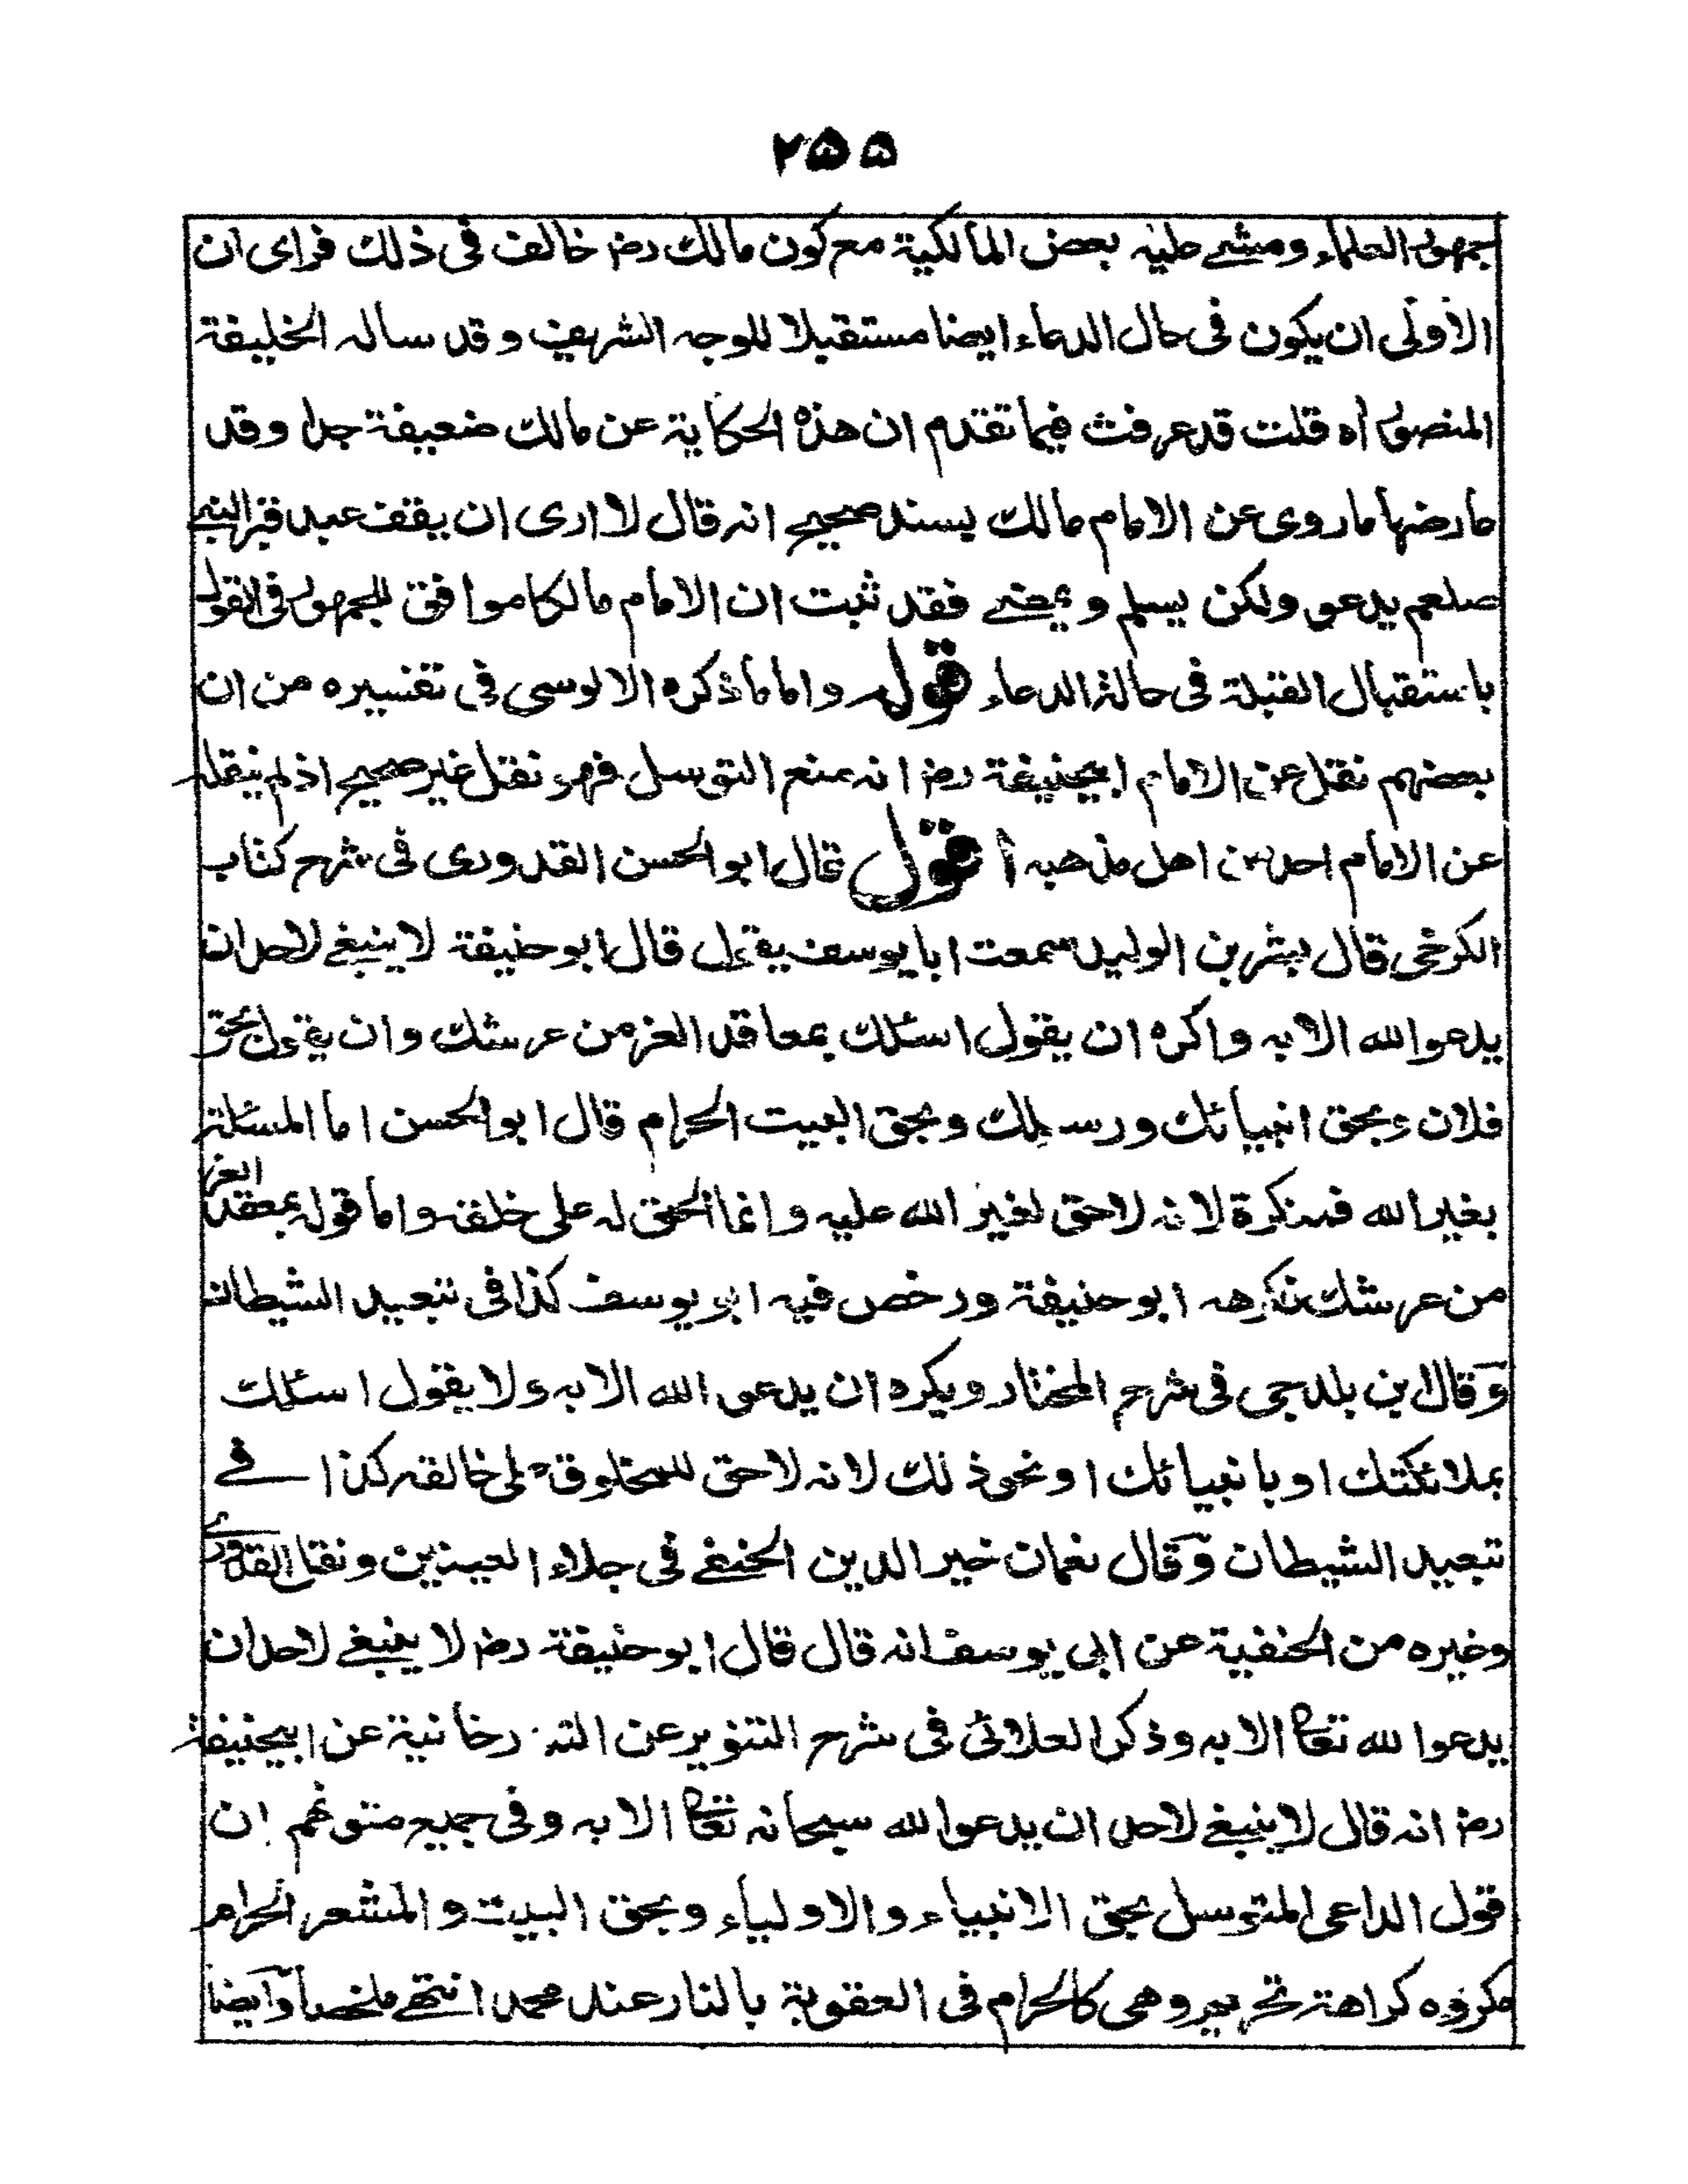 ۲۵۵
جمهور العلماء ومشے عليه بعض المالكية مع كون مالك رضـ خالف فى ذلك فراى ان
الاولى ان يكون فى حال الدعاء ايضا مستقبلا للوجه الشريف وقد ساله الخليفة
المنصور اه قلت قد عرفت فيما تقدم ان هذه الحكاية عن مالك ضعيفة جدا وقد
عارضها ما روى عن الامام مالك بسند صحيح انه قال لا ارى ان يقف عند قبر النبے
صلعم يدعو ولكن يسلم ويمضے فقد ثبت ان الامام مالكا موافق للجمهور فى القول
باستقبال القبلة فى حالة الدعاء قوله واما ما ذكره الالوسى فى تفسيره من ان
بعضهم نقل عن الامام ابيحنيفة رضـ انه يمنع التوسل فهو نقل غير صحيح اذ لم ينقله
عن الامام احد من اهل مذهبه اقول قال ابو الحسن القدورى فى شرح كتاب
الكرخى قال بشر بن الوليد سمعت ابا يوسف يقول قال ابو حنيفة لا ينبغے لاحد ان
يدعوا الله الا به واكره ان يقول اسئلك بمعاقد العز من عرشك وان يقول بحق
فلان وبحق انبيائك ورسلك وبحق البيت الحرام قال ابو الحسن اما المسئلة
بغير الله فمنكرة لانه لا حق لغير الله عليه وانما الحق له على خلقه واما قوله بمعقد العز
من عرشك فكرهه ابو حنيفة ورخص فيه ابو يوسف كذا فى تبعيد الشيطان
وقال ابن بلدجى فى شرح المختار ويكره ان يدعو الله الا به ولا يقول اسئلك
بملائكتك او بانبيائك او نحو ذلك لانه لا حق للمخلوق على خالقه كذا فے
تبعيد الشيطان وقال نعمان خير الدين الحنفے فى جلاء العينين ونقل القدورے
وغيره من الحنفية عن ابى يوسف انه قال قال ابو حنيفة رضـ لا ينبغے لاحد ان
يدعوا لله تعا الا به وذكر العلائى فى شرح التنوير عن التتارخانية عن ابيحنيفة
رضـ انه قال لا ينبغے لاحد ان يدعوا لله سبحانه تعا الا به وفى جميع متونهم ان
قول الداعى المتوسل بحق الانبياء والاولياء وبحق البيت والمشعر الحرام
مكروه كراهة تحريم وهى كالحرام فى العقوبة بالنار عند محمد انتهے ملخصا وايضا